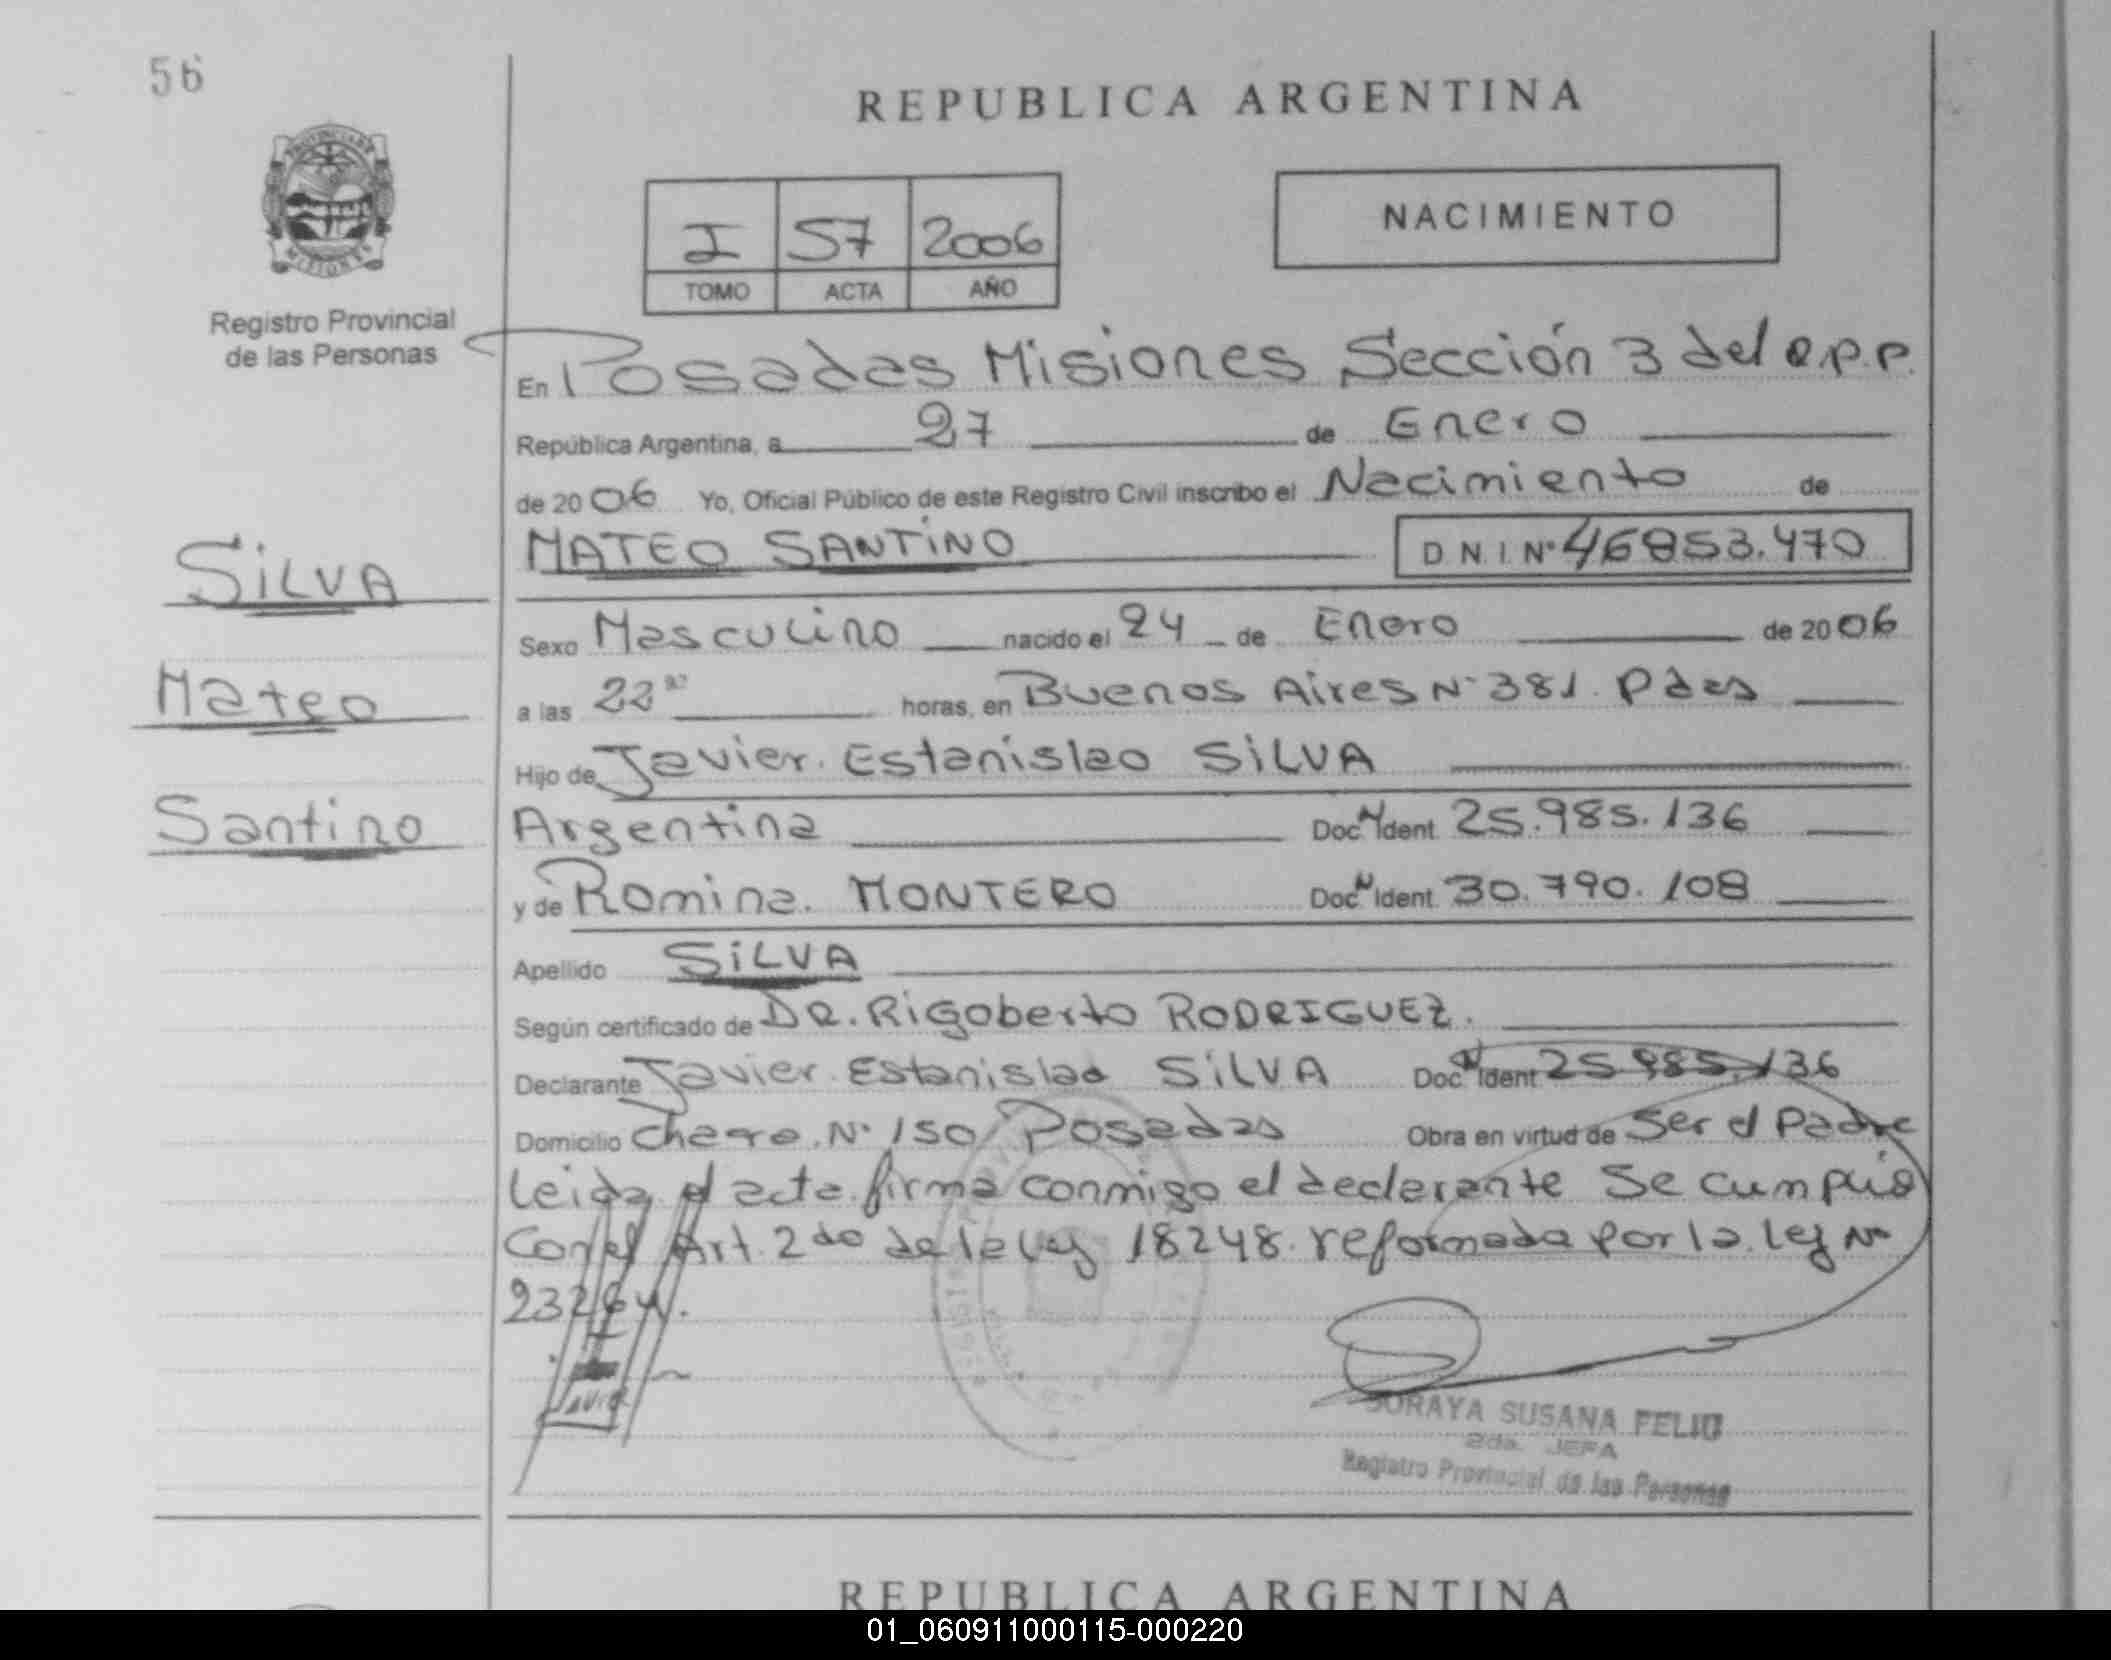 56
REPUBLICA ARGENTINA
PROVINCIA DE
MISIONES
I 57 2006
TOMO ACTA AÑO
NACIMIENTO
Registro Provincial
de las Personas
En Posadas Misiones Sección 3 del R.P.P.
República Argentina, a 27 de Enero
de 2006 Yo, Oficial Público de este Registro Civil inscribo el Nacimiento de
MATEO SANTINO D.N.I. Nº 46853.470
SILVA
Mateo
Santino
Sexo Masculino nacido el 24 de Enero de 2006
a las horas, en Buenos Aires Nº 381. Pdas
Hijo de Javier Estanislao SILVA
Argentina Doc. N Ident. 25.985.136
y de Romina. MONTERO Doc. N Ident. 30.790.108
Apellido SILVA
Según certificado de DR. Rigoberto RODRIGUEZ.
Declarante Javier Estanislao SILVA Doc. N Ident 25.985.136
Domicilio Nº 150 Posadas Obra en virtud de Ser el Padre
Leida el acta firma conmigo el declarante Se cumplió
Con el Art. 2do de la ley 18248. reformada por la ley Nº
23264.
SORAYA SUSANA FELIU
2da. JEFA
Registro Provincial de las Personas
REPUBLICA ARGENTINA
01_060911000115-000220